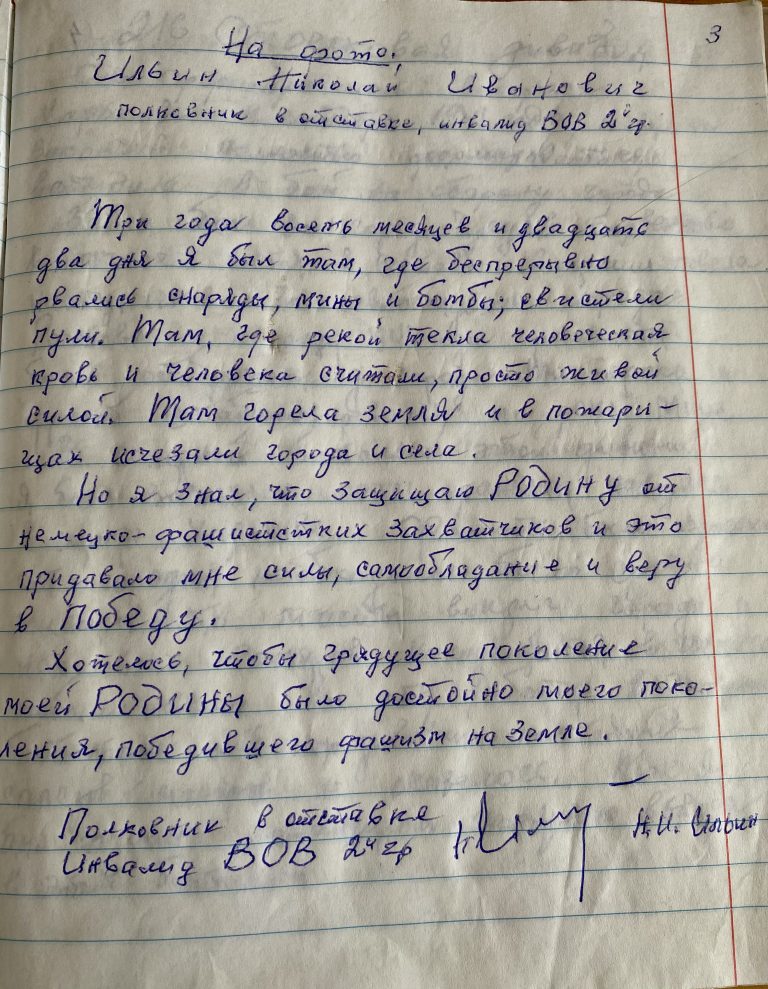 3
На фото.
Ильин Николай Иванович
полковник в отставке, инвалид ВОВ 2й гр.
Три года восемь месяцев и двадцать
два дня я был там, где беспрерывно
рвались снаряды, мины и бомбы; свистели
пули. Там, где рекой текла человеческая
кровь и человека считали, просто живой
силой. Там горела земля и в пожари-
щах исчезали города и села.
Но я знал, что защищаю РОДИНУ от
немецко-фашистстких захватчиков и это
придавало мне силы, самообладание и веру
в ПОБЕДУ.
Хотелось, чтобы грядущее поколение
моей РОДИНЫ было достойно моего поко-
ления, победившего фашизм на Земле.
Полковник в отставке
Инвалид ВОВ 2й гр
Н.И. Ильин